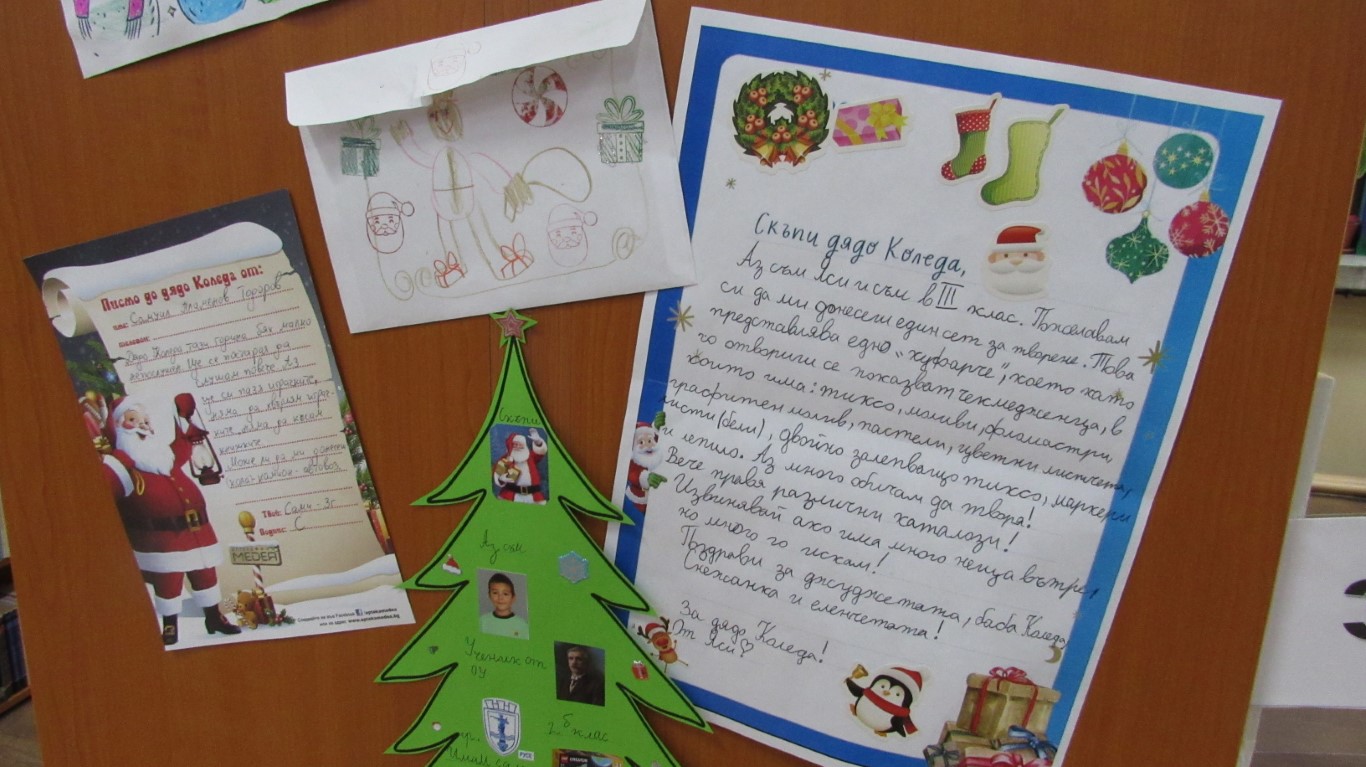 Писмо до дядо Коледа от:
Име: Самуил Пламенов Тодоров
Дядо Коледа, тази година бях малко
непослушен. Ще се постарая да
слушам повече. Аз
ще си пазя играчките,
няма да хвърлям
няма да късам
Може ли да ми донесеш
Твой: Сами - 3г.
Подпис: С
MEDEA
www.optekamedea.bg
Скъпи
Аз съм
Ученик от
ОУ
2 б клас
гр.
РУСЕ
Имам са
Скъпи дядо Коледа,
Аз съм Яси и съм в III клас. Пожелавам
си да ми донесеш един сет за творене. Това
представлява едно "куфарче", което като
го отвориш се показват чекмедженца, в
които има: тиксо, моливи, флмастри,
графитен молив, пастели, цветни листчета,
листи (бели), двойно залепващо тиксо, маркери
и лепило. Аз много обичам да творя!
Вече правя различни каталози!
Извинявай ако има много неща вътре,
но много го искам!
Поздрави за джуджетата, баба Коледа,
Снежанка и еленчетата!
За дядо Коледа!
От Яси ♡